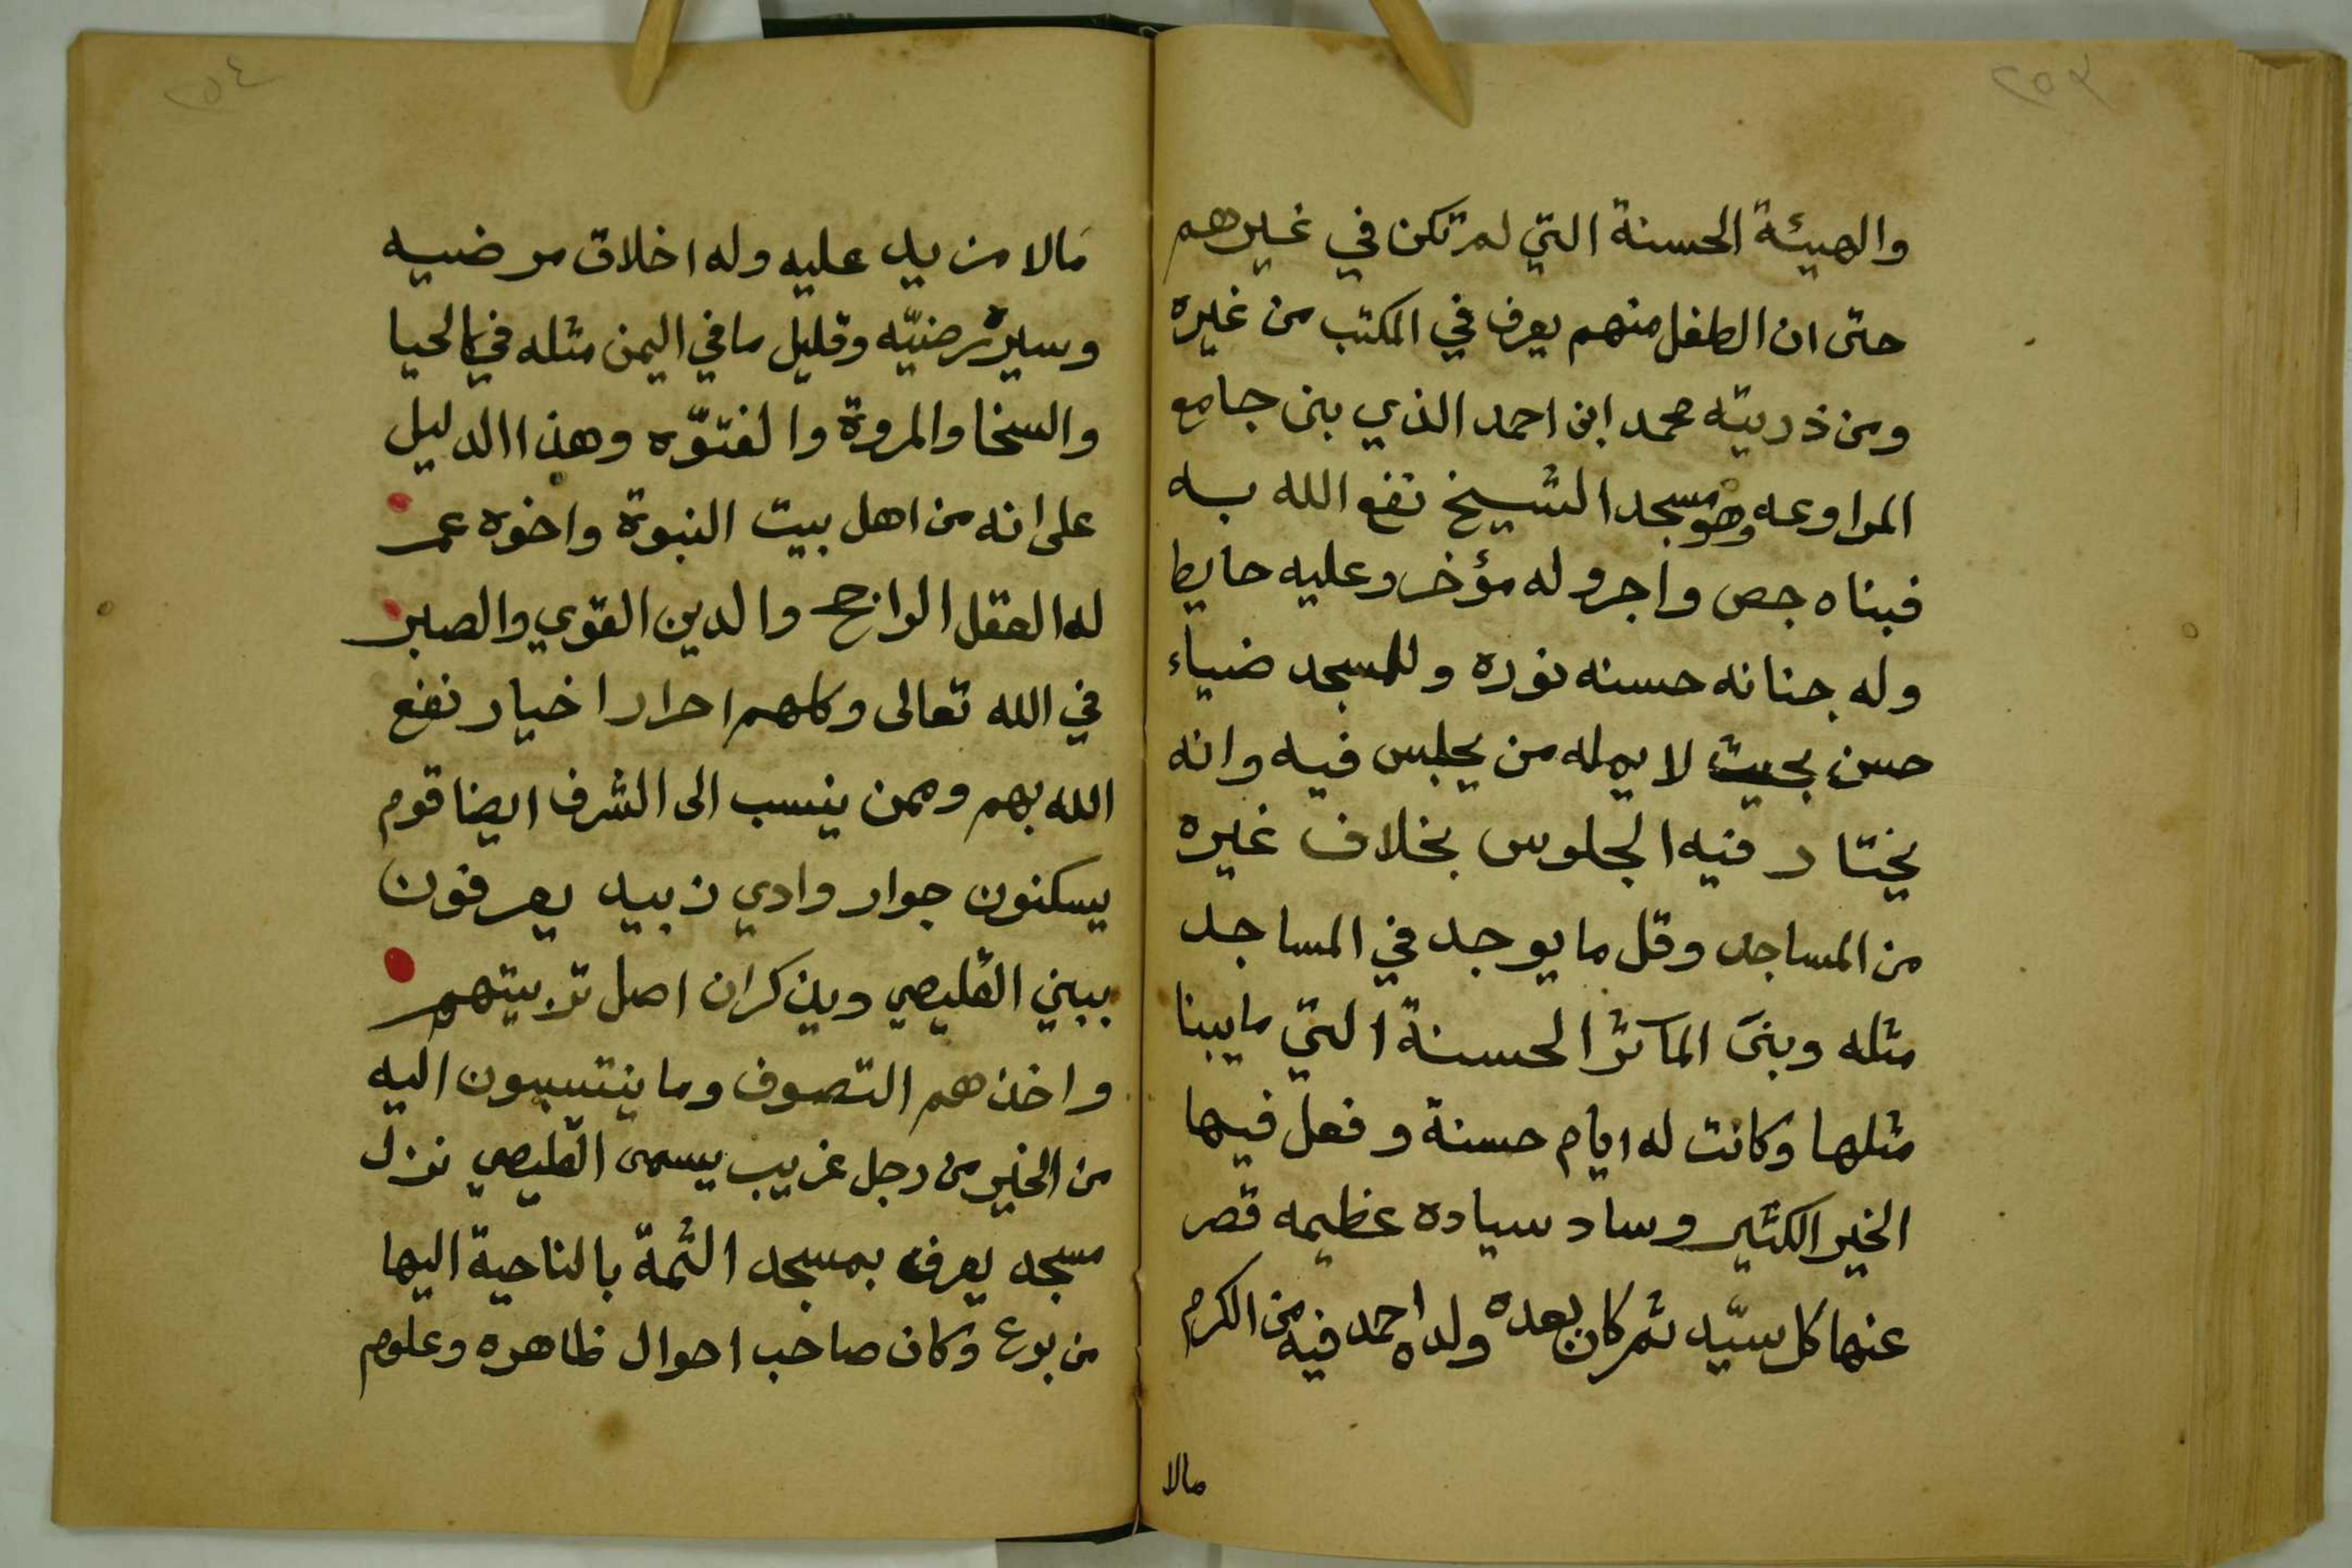 ٢٥٣
والهيئة الحسنة التي لم تكن في غيرهم
حتى ان الطفل منهم يعرف في المكتب من غيره
ومن ذريته محمد ابن احمد الذي بنى جامع
المراوعه وهو مسجد الشيخ نفع الله به
فبناه جص واجر وله مؤخر وعليه حايط
وله جنانه حسنه نوره وللمسجد ضياء
حسن بحيث لا يمله من يجلس فيه وانه
يختار فيه الجلوس بخلاف غيره
من المساجد وقل ما يوجد في المساجد
مثله وبنى المآثر الحسنة التي ما يبنا
مثلها وكانت له ايام حسنة وفعل فيها
الخير الكثير وساد سياده عظيمه قصر
عنها كل سيّد ثم كان بعده ولده احمد فيه من الكرم
مالا
٢٥٤
مالا مزيد عليه وله اخلاق مرضيه
وسيرة رضيّه وقليل ما في اليمن مثله في الحيا
والسخا والمروة والفتوّه وهذا الدليل
على انه من اهل بيت النبوة واخوه عمر
له العقل الراجح والدين القوي والصبر
في الله تعالى وكلهم احرار اخيار نفع
الله بهم وممن ينسب الى الشرف ايضا قوم
يسكنون جوار وادي زبيد يعرفون
ببني القليصي ويذكر ان اصل تربيتهم
واخذهم التصوف وما ينتسبون اليه
من الخير من رجل غريب يسمى القليصي نزل
مسجد يعرف بمسجد الثمة بالناحية اليها
من بوع وكان صاحب احوال ظاهره وعلوم